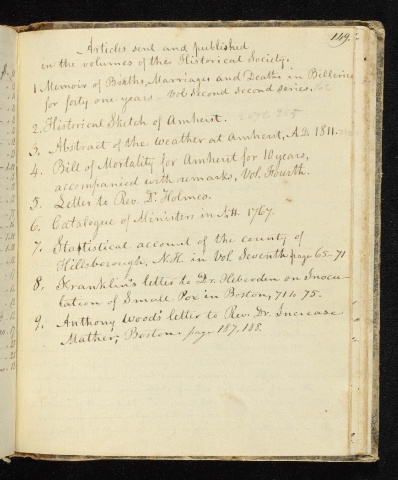 149.
Articles sent and published
in the volumes of the Historical Society.
1 Memoir of Births, Marriages and Deaths in Billerica
for forty one years - Vol second second series.
2. Historical Sketch of Amherst.
3. Abstract of the weather at Amherst, A.D. 1811.
4. Bill of Mortality for Amherst for 10 years,
accompanied with remarks, Vol. Fourth.
5. Letter to Rev. Dr. Holmes.
6. Catalogue of Ministers in N.H. 1767.
7. Statistical account of the county of
Hillsborough, N.H. in Vol Seventh page 65-71
8. Franklin's letter to Dr. Heberden on Inocu-
lation of Small Pox in Boston, 71 to 75.
9. Anthony Wood's letter to Rev. Dr. Increase
Mather, Boston. page 187, 188.